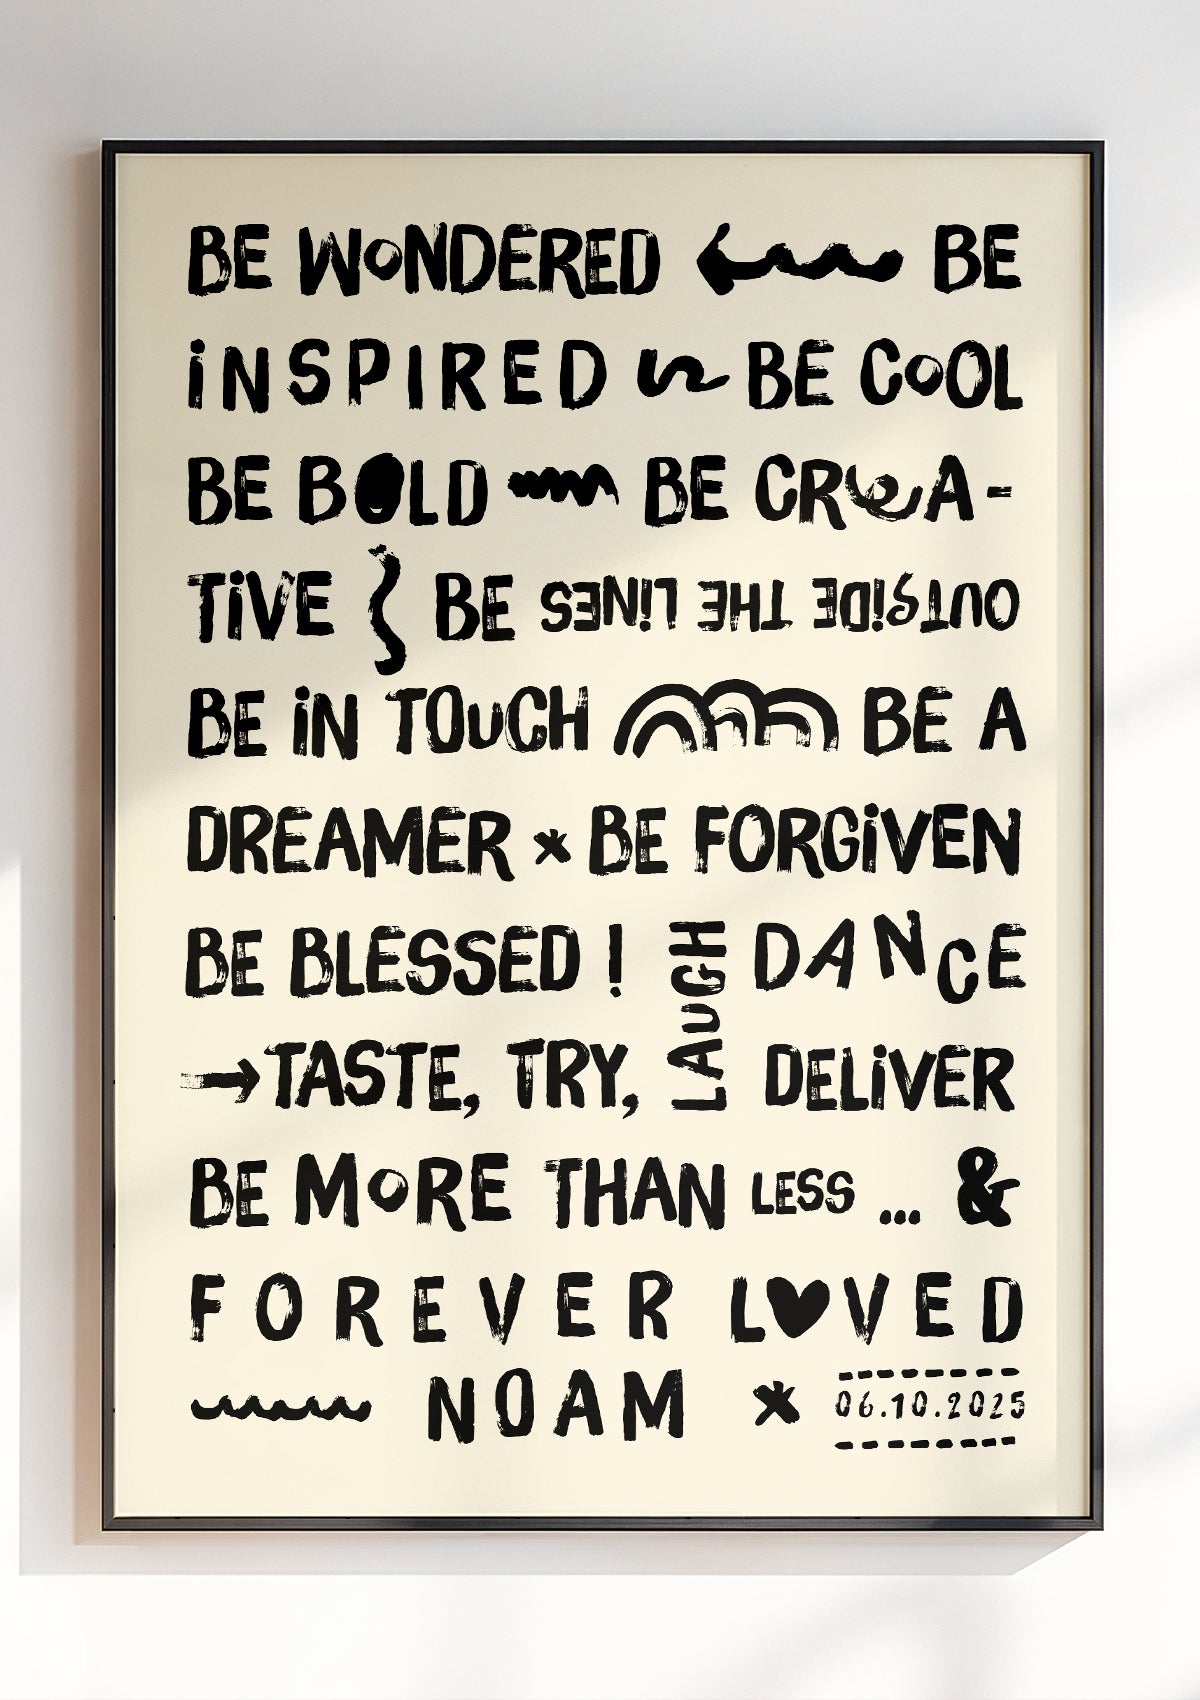 BE WONDERED BE
INSPIRED BE COOL
BE BOLD BE CREA-
TIVE BE OUTSIDE THE LINES
BE IN TOUCH BE A
DREAMER * BE FORGIVEN
BE BLESSED! LAUGH DANCE
→TASTE, TRY, DELIVER
BE MORE THAN LESS ... &
FOREVER L♥VED
NOAM * 06.10.2025